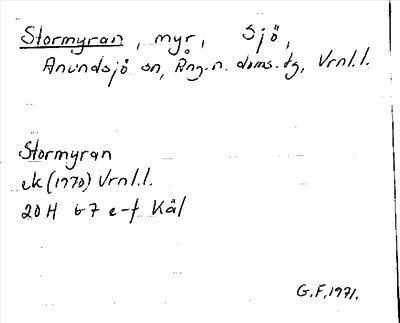 Stormyran, myr, Sjö,
Anundsjö sn, Ång.n. doms.tg, Vrnl.l.
Stormyran
ek (1970) Vrnl.l.
20 H 67 e-f Käl
G.F. 1971.